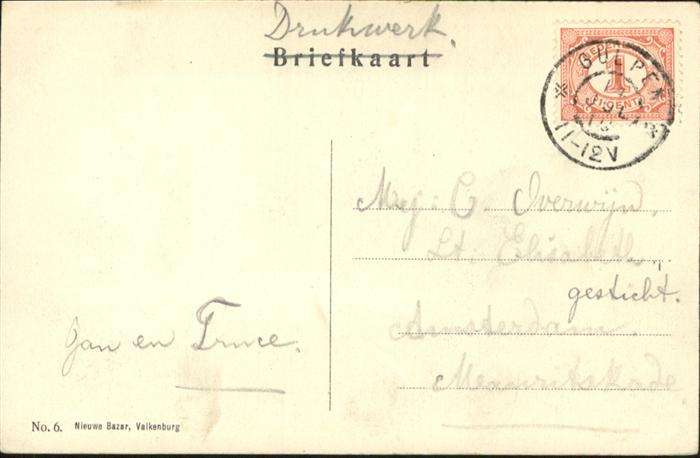 Drukwerk.
Briefkaart
1
CENT
GULPEN
11-12V
Mej. C. Overwijn,
St. Elisabeth
gesticht.
Amsterdam.
Mauritskade
Jan en Truce.
No. 6. Nieuwe Bazar, Valkenburg